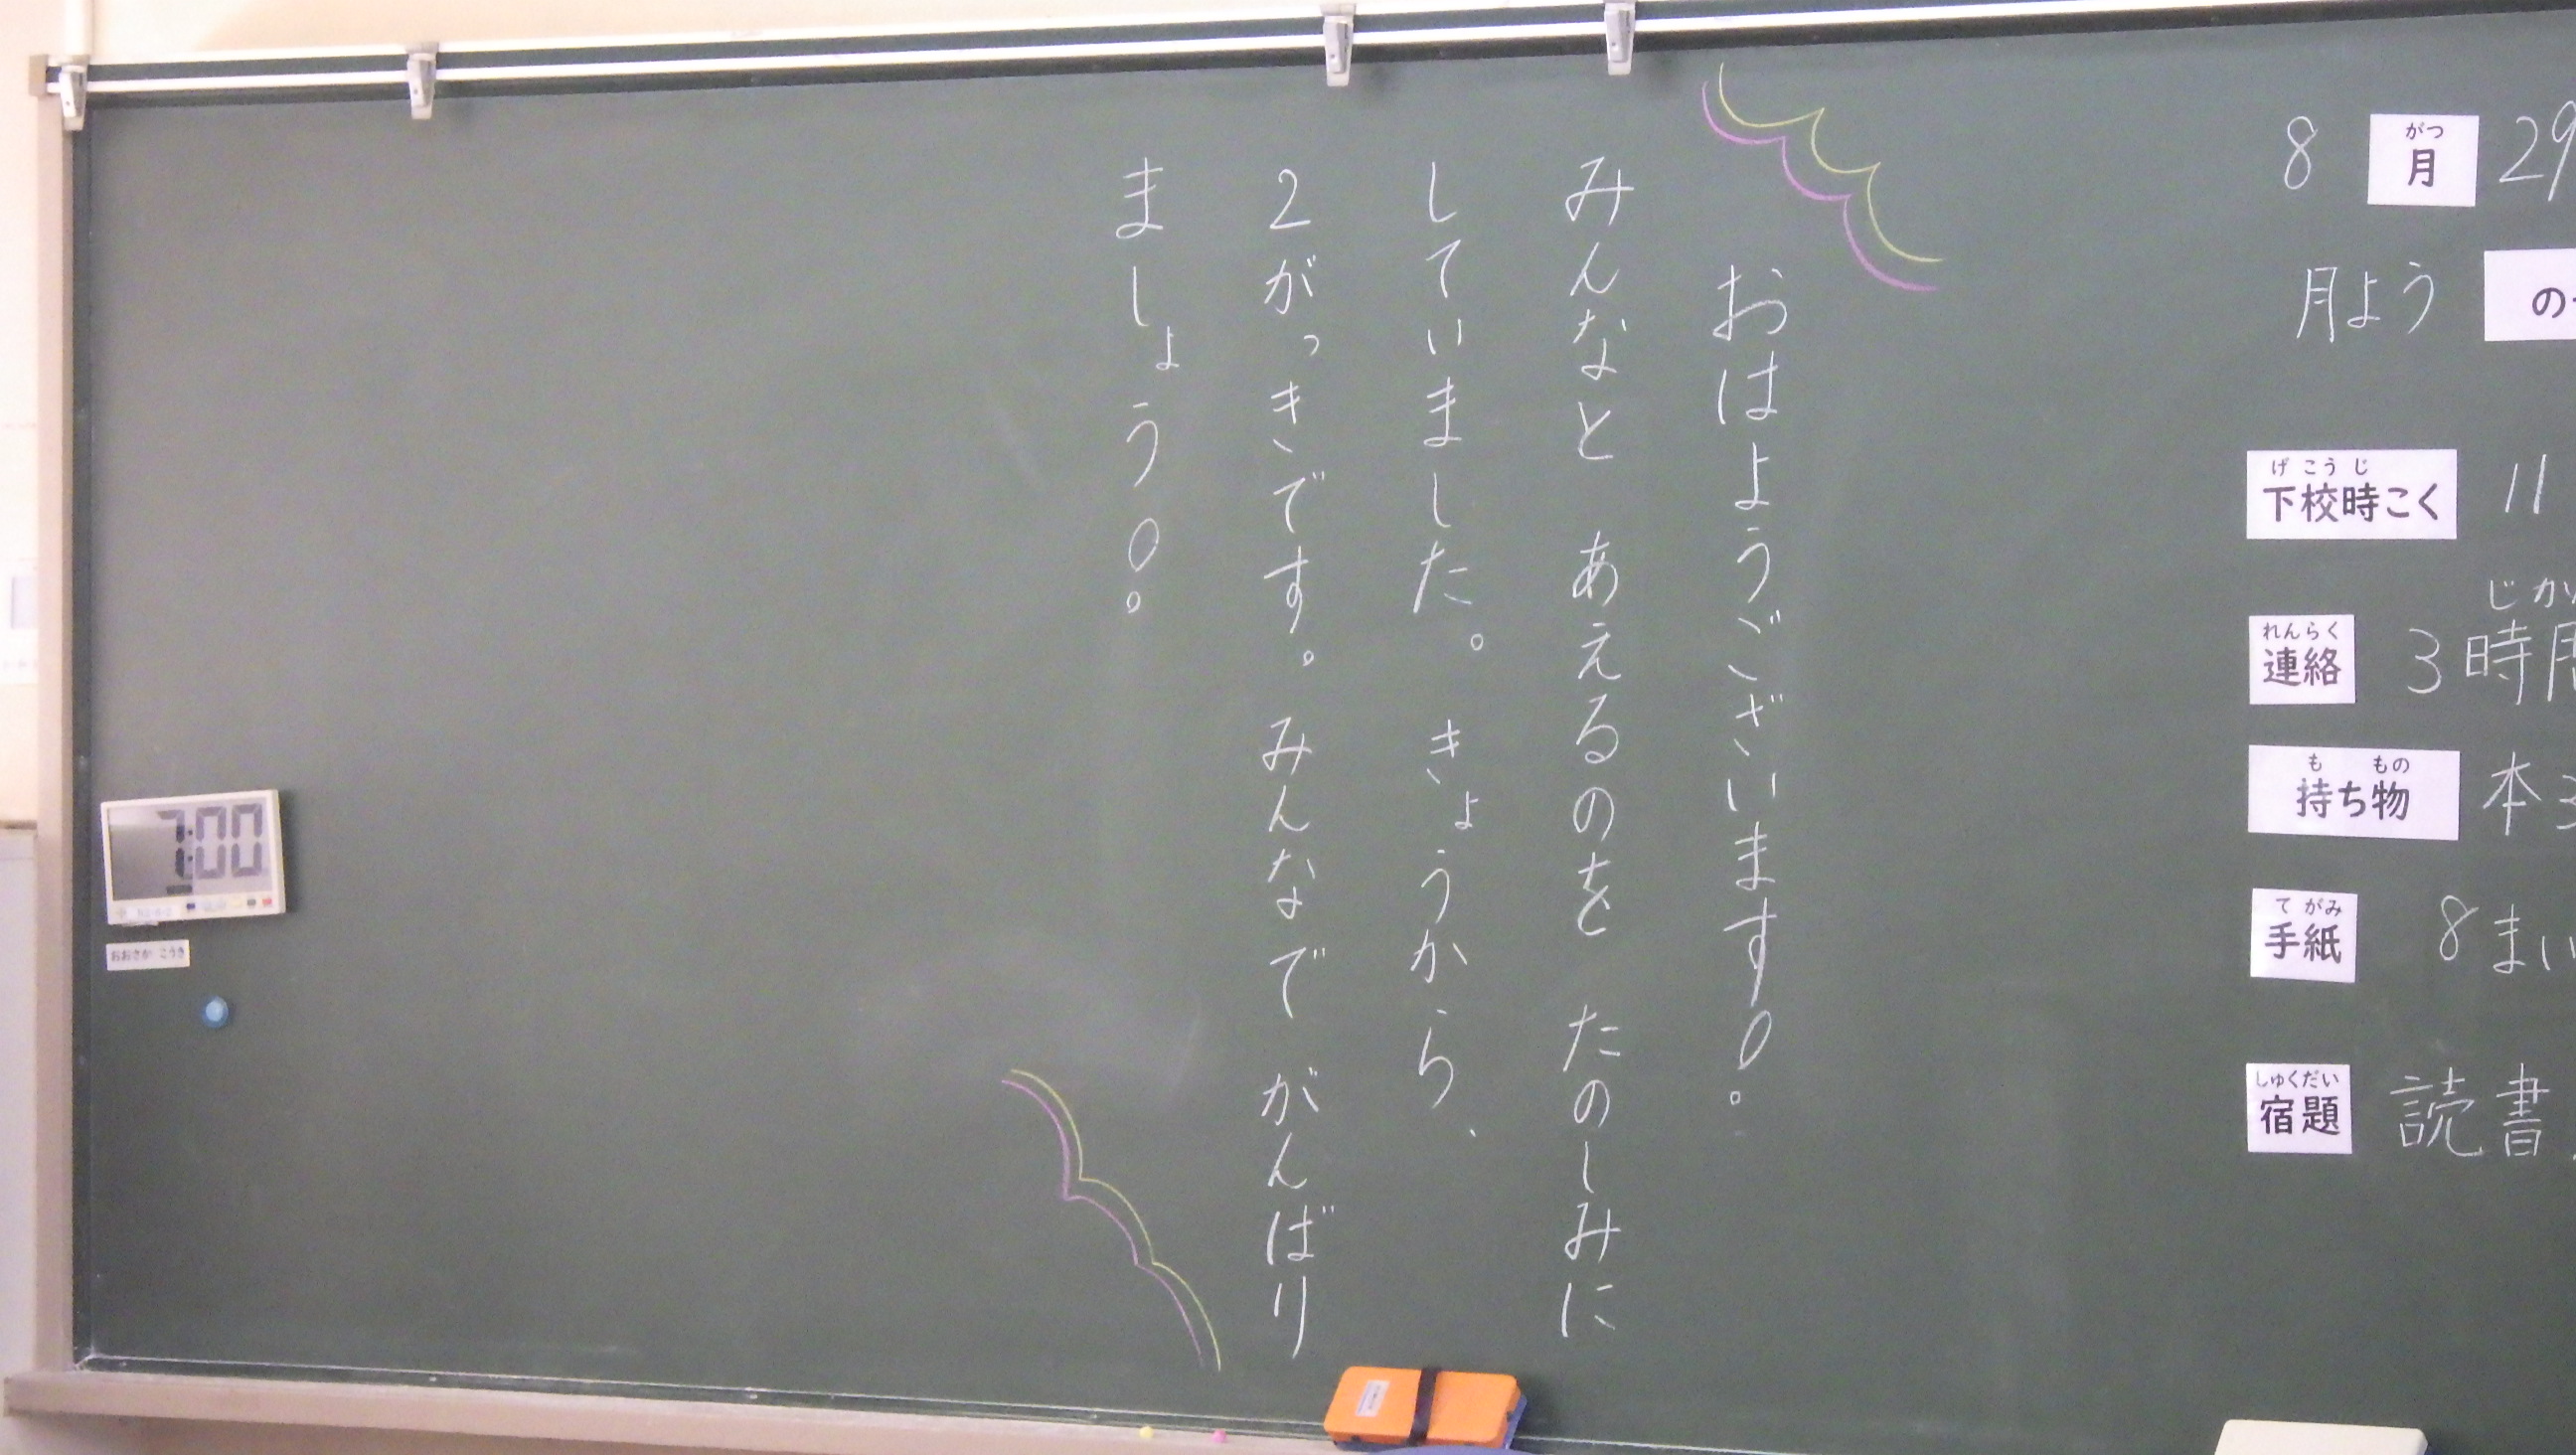 8 月 29
がつ
月よう の
げこうじ
下校時こく 11
じか
れんらく
連絡 3時
も もの
持ち物 本
て がみ
手紙 8まい
しゅくだい
宿題 読書
おはようございます!。
みんなと あえるのを たのしみに
していました。 きょうから、
2がっきです。 みんなで がんばり
ましょう!。
7:00
おおさか こうき